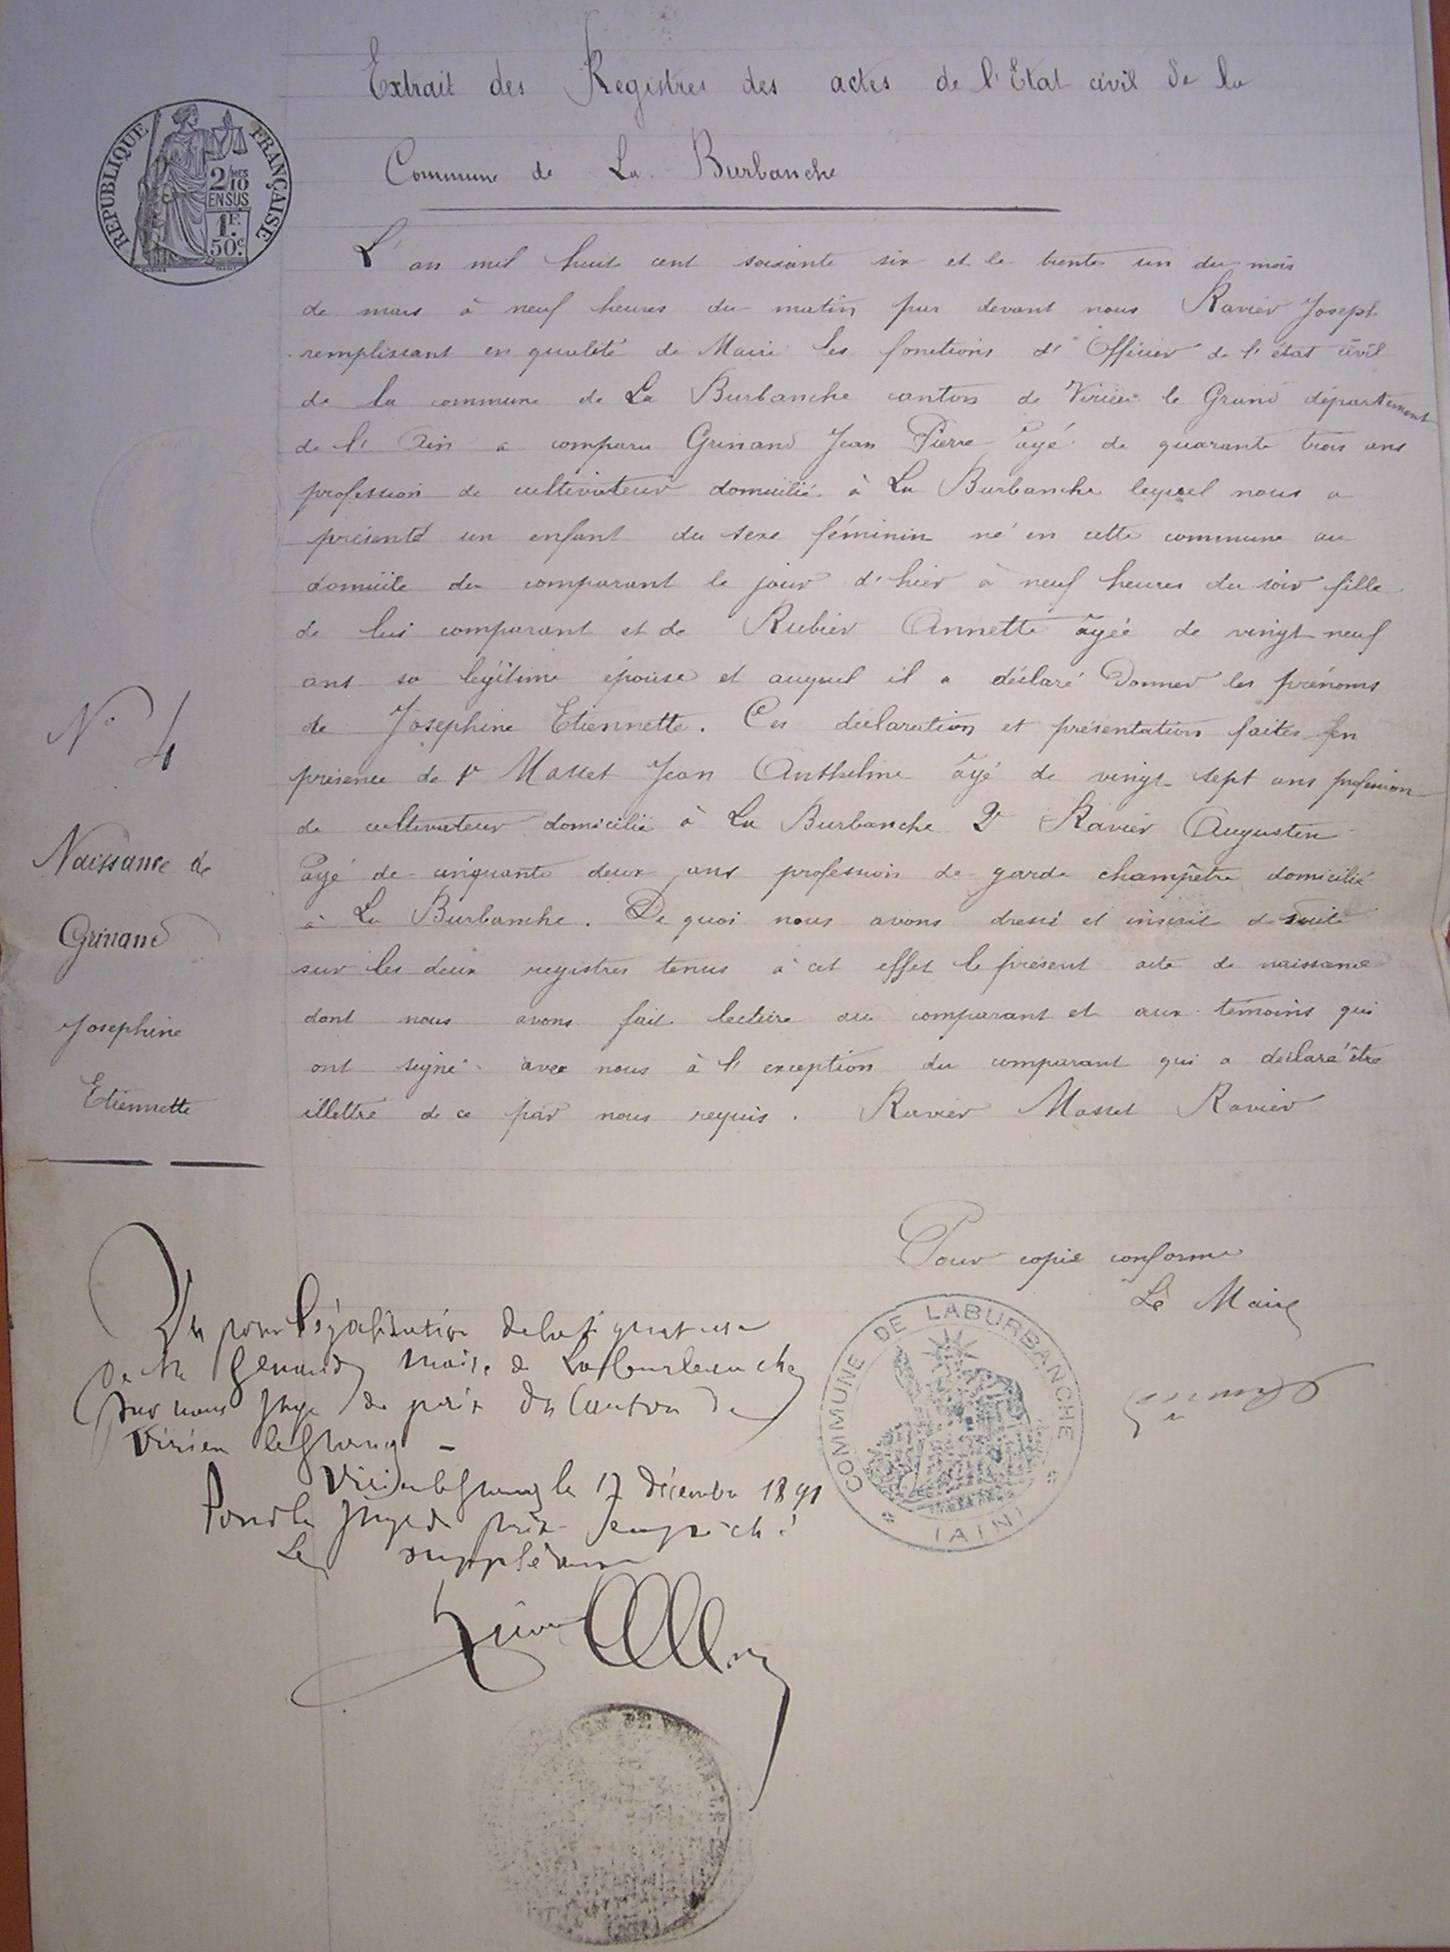 Extrait des Registres des actes de l'Etat civil de la
Commune de La Burbanche
REPUBLIQUE FRANÇAISE
2/10 MES
EN SUS
1F.
50c.
L'an mil huit cent soixante six et le trente un du mois
de mars à neuf heures du matin par devant nous Ravier Joseph
remplissant en qualité de Maire les fonctions d'Officier de l'état civil
de la commune de La Burbanche canton de Virieu le Grand département
de l'Ain a comparu Grinand Jean Pierre âgé de quarante trois ans
profession de cultivateur domicilié à La Burbanche lequel nous a
présenté un enfant du sexe féminin né en cette commune au
domicile du comparant le jour d'hier à neuf heures du soir fille
de lui comparant et de Rubier Annette âgée de vingt neuf
ans sa légitime épouse et auquel il a déclaré Donner les prénoms
de Josephine Etiennette. Ces déclaration et présentation faites en
présence de 1° Masset Jean Anthelme âgé de vingt sept ans profession
de cultivateur domicilié à La Burbanche 2° Ravier Augustin
âgé de cinquante deux ans profession de garde champêtre domicilié
à La Burbanche. De quoi nous avons dressé et inscrit de suite
sur les deux registres tenus à cet effet le présent acte de naissance
dont nous avons fait lecture au comparant et aux témoins qui
ont signé avec nous à l'exception du comparant qui a déclaré être
illettré de ce par nous requis. Ravier Masset Ravier
N° 4
Naissance de
Grinand
Josephine
Etiennette
Pour copie conforme
Le Maire
COMMUNE DE LABURBANCHE
(AIN)
Vu pour légalisation de la signature
de Mr maire de La Burbanche
par nous Juge de paix du Canton de
Virieu le Grand -
Virieu le Grand le 17 décembre 1891
Pour le Juge de paix empêché
Le suppléant